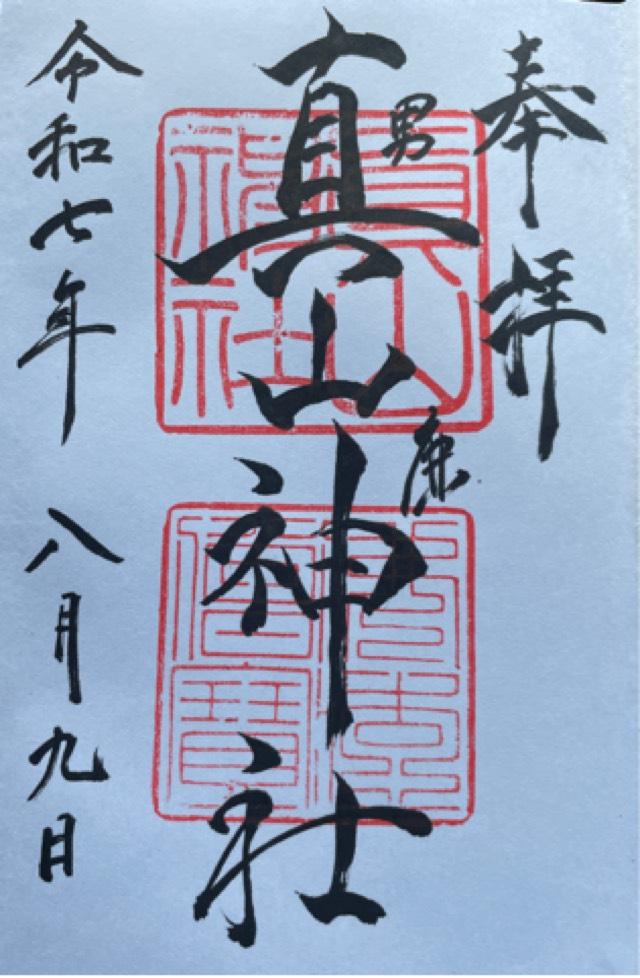 奉拝
男鹿
真山神社
真山神社
令和七年 八月九日